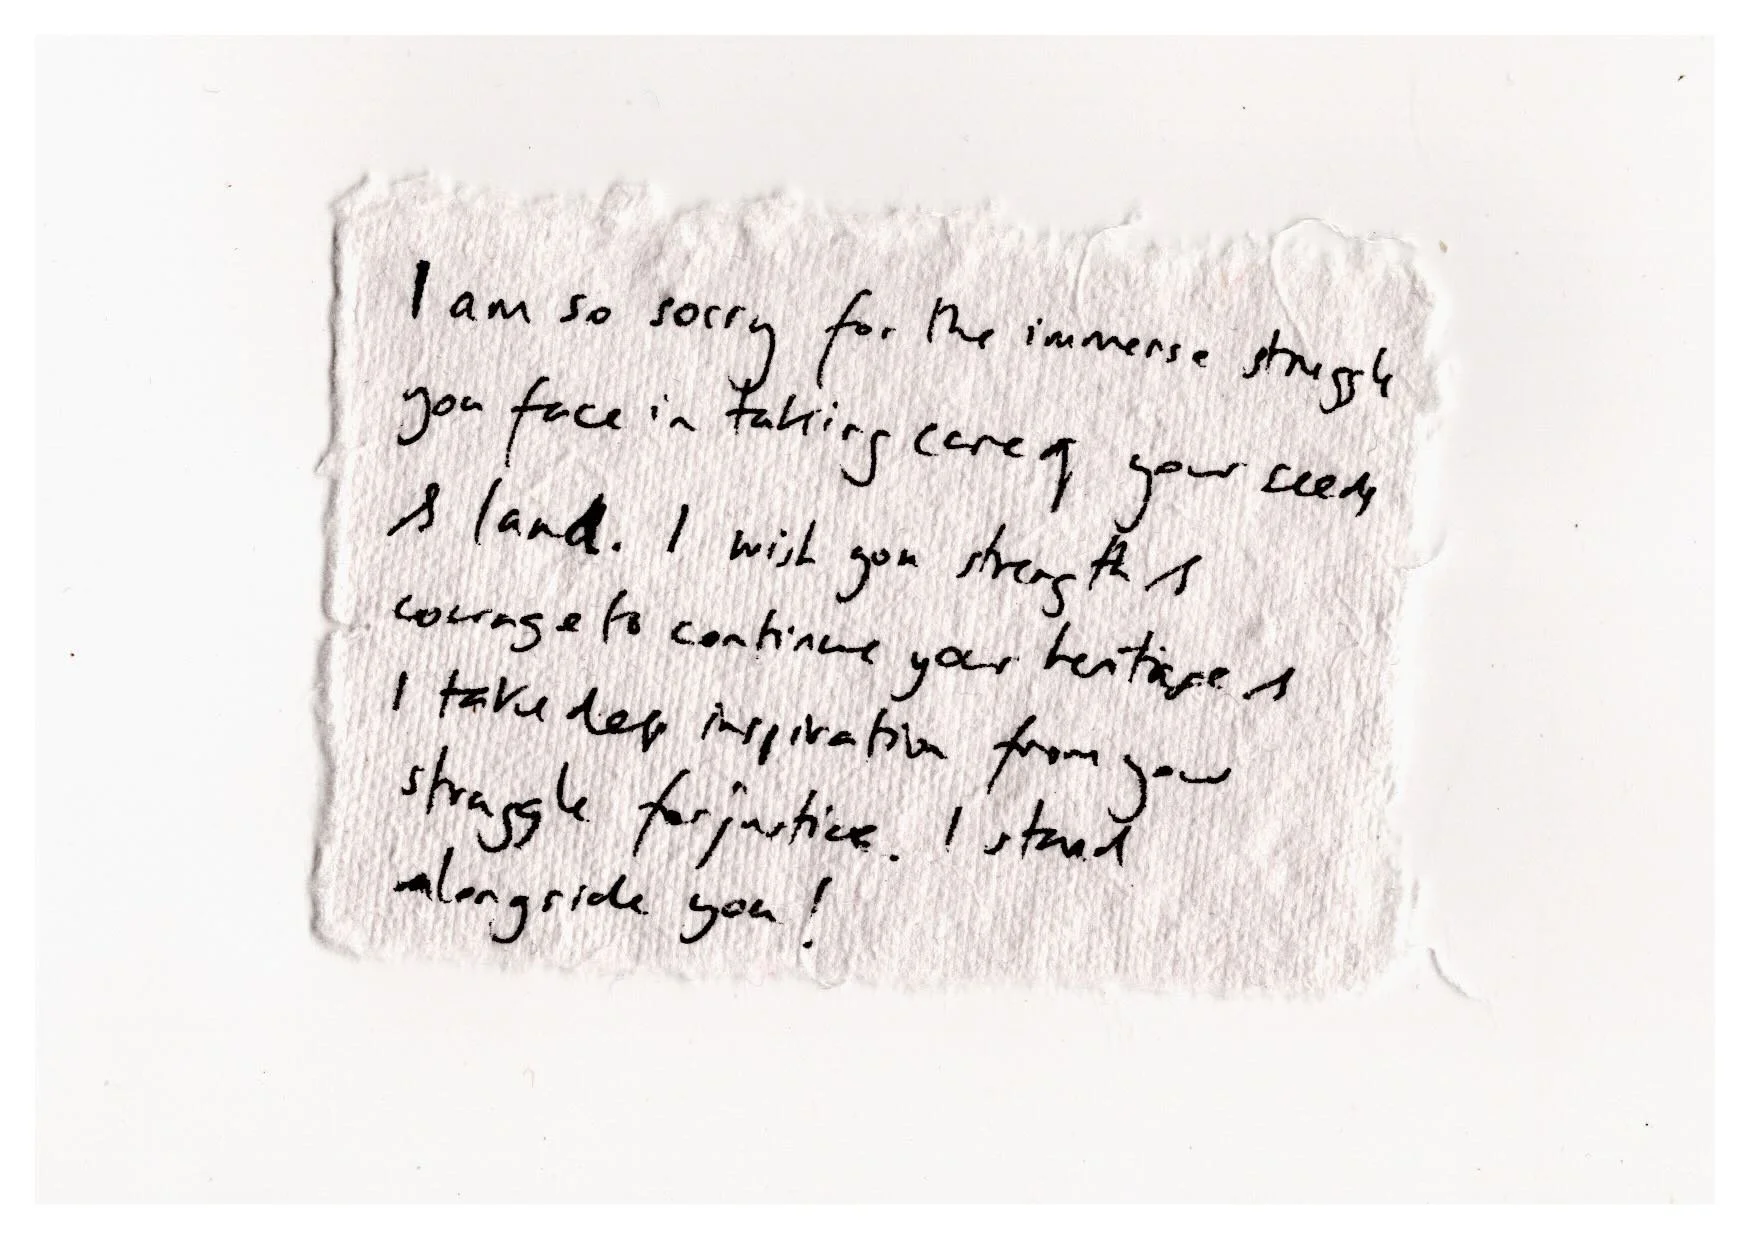 I am so sorry for the immense struggle
you face in taking care of your seeds
& land. I wish you strength &
courage to continue your heritage &
I take deep inspiration from your
struggle for justice. I stand
alongside you!